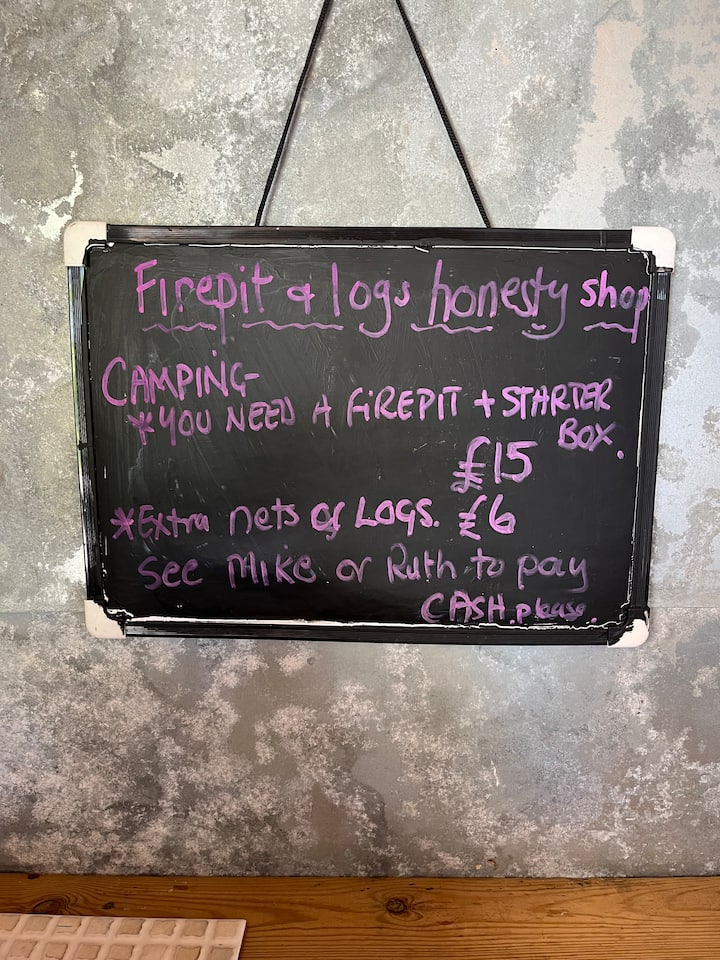 Firepit & logs honesty shop
CAMPING-
*YOU NEED A FIREPIT + STARTER
BOX.
£15
*Extra nets of LOGS. £6
See Mike or Ruth to pay
CASH. please.